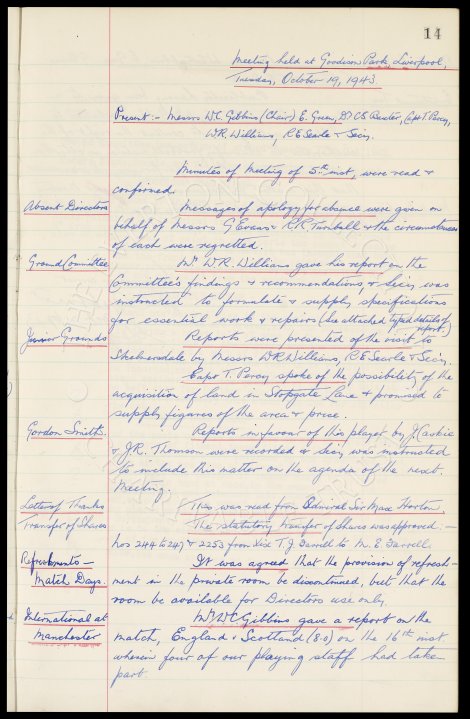 14
Meeting held at Goodison Park, Liverpool,
Tuesday, October 19, 1943
Present:- Messrs W.C. Gibbins (Chair) E. Green, Dr C.S. Baxter, Capt T. Percy,
W.R. Williams, R E Searle & Secy.
Minutes of Meeting of 5th inst, were read &
confirmed.
Absent Directors
Messages of apology for absence were given on
behalf of Messrs G Evans & R.R. Turnbull & the circumstances
of each were regretted.
Ground Committee
Mr W.R. Williams gave his report on the
Committee's findings & recommendations & Secy was
instructed to formulate & supply specifications
for essential work & repairs (See attached typed details of
report.)
Junior Grounds
Reports were presented of the visit to
Skelmersdale by Messrs W.R Williams, R E Searle & Secy.
Capt T. Percy spoke of the possibility of the
acquisition of land in Stopgate Lane & promised to
supply figures of the area & price.
Gordon Smith.
Reports in favour of this player by J.
& J.R. Thomson were recorded & Secy was instructed
to include this matter on the agenda of the next
Meeting.
Letter of Thanks
This was read from Admiral Sir Max Horton.
Transfer of Shares
The statutory transfer of Shares was approved:-
Nos 244 to 247 & 2253 from T.J. Farrell to M. E. Farrell.
Refreshments -
Match Days.
It was agreed that the provision of refresh-
ment in the private room be discontinued, but that the
room be available for Directors use only.
International at
Manchester
Mr W C Gibbins gave a report on the
match, England v Scotland (8-0) on the 16th inst
wherein four of our playing staff had taken
part.